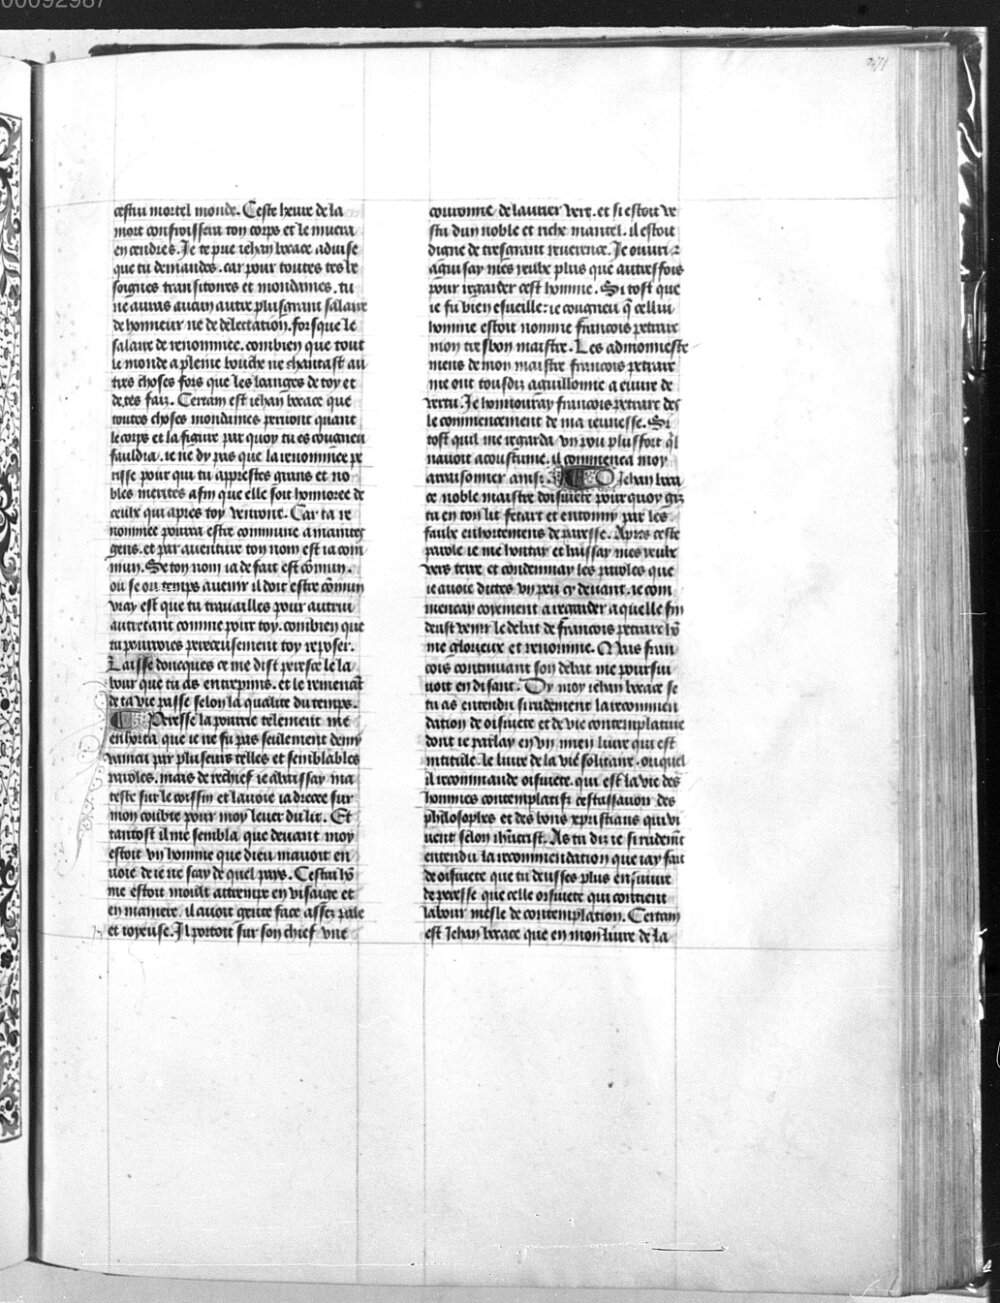 00092987
271
cestui mortel monde. Ceste heure de la
mort confroissera ton corps et le muera
en cendres. Je te prie iehan bocace aduise
que tu demandes. car pour toutes tes be
soignes transitoires et mondaines. tu
ne auras aucun autre plusgrant salaire
de honneur ne de delectation. forsque le
salaire de renommee. combien que tout
le monde a pleine bouche ne chantast au
tres choses fors que les louanges de toy et
de tes faiz. Certain est iehan bocace que
toutes choses mondaines periront quant
le corps et la figure par quoy tu es cougneu
fauldra. ie ne dy pas que la renommee pe
risse pour qui tu apprestes grans et no
bles merites afin que elle soit honnoree de
ceulx qui apres toy venront. Car ta re
nommee pourra estre commune a maintes
gens. et par auenture ton nom est ia com
mun. Se ton nom ia de fait est cōmun.
ou se ou temps auenir il doit estre cōmun
vray est que tu travailles pour autrui
autretant comme pour toy. combien que
tu pourroies pereceusement toy reposer.
Laisse doncques ce me dist peresce le la
bour que tu as entreprins. et le remenāt
de ta vie passe selon la qualite du temps.
Peresse la pourrie telement me
enhorta que ie ne fu pas seulement demy
vaincu par plusieurs telles et semblables
paroles. mais de rechief ie abaissay ma
teste sur le coissin et lauoie ia drecee sur
mon coubte pour moy leuer du lit. Et
tantost il me sembla que deuant moy
estoit vn homme que dieu mauoit en
uoie de ie ne scay de quel pays. Cestui hō
me estoit moult attrempe en visaige et
en maniere. il auoit gente face assez pale
et ioyeuse. Il portoit sur son chief vne
couronne de laurier vert. et si estoit ve
stu dun noble et riche mantel. il estoit
digne de tresgrant reuerence. Je ouuri ⁊
aguisay mes yeulx plus que autresfois
pour regarder cest homme. Si tost que
ie fu bien esueille: ie cougneu q̄ cellui
homme estoit nomme francois petrarc
mon tresbon maistre. Les admonneste
mens de mon maistre francois petrarc
me ont tousdiz aguillonne a euure de
vertu. Je honnouray francois petrarc des
le commencement de ma ieunesse. Si
tost quil me regarda vn pou plus fort q̄l
nauoit acoustume. il commenca moy
arraisonner ainsi. O Jehan boca
ce noble maistre doisiuete pourquoy gis
tu en ton lit fetart et entommy par les
faulx enhortemens de paresse. Apres ceste
parole ie me hontay et baissay mes yeulx
vers terre et condemnay les paroles que
ie auoie dictes vn peu cy deuant. ie com
mencay coyement a regarder a quelle fin
deust venir le debat de francois petrarc hō
me glorieux et renomme. Mais fran
cois continuant son debat me poursui
uoit en disant. Dy moy iehan bocace se
tu as entendu si rudement la recommen
dation de oisiuete et de vie contemplatiue
dont ie parlay en vn mien liure qui est
intitule. le liure de la vie solitaire. ouquel
il recommande oisiuete. qui est la vie des
hommes contemplatifz cestassauoir des
philosophes et des bons xpristians qui vi
uent selon ihūcrist. As tu di ie si rudemt̄
entendu la recommendation que iay fait
de oisiuete que tu deusses plus ensuiuir
de peresse que celle oisiuete qui contient
labour mesle de contemplation. Certain
est Jehan bocace que en mon liure de la